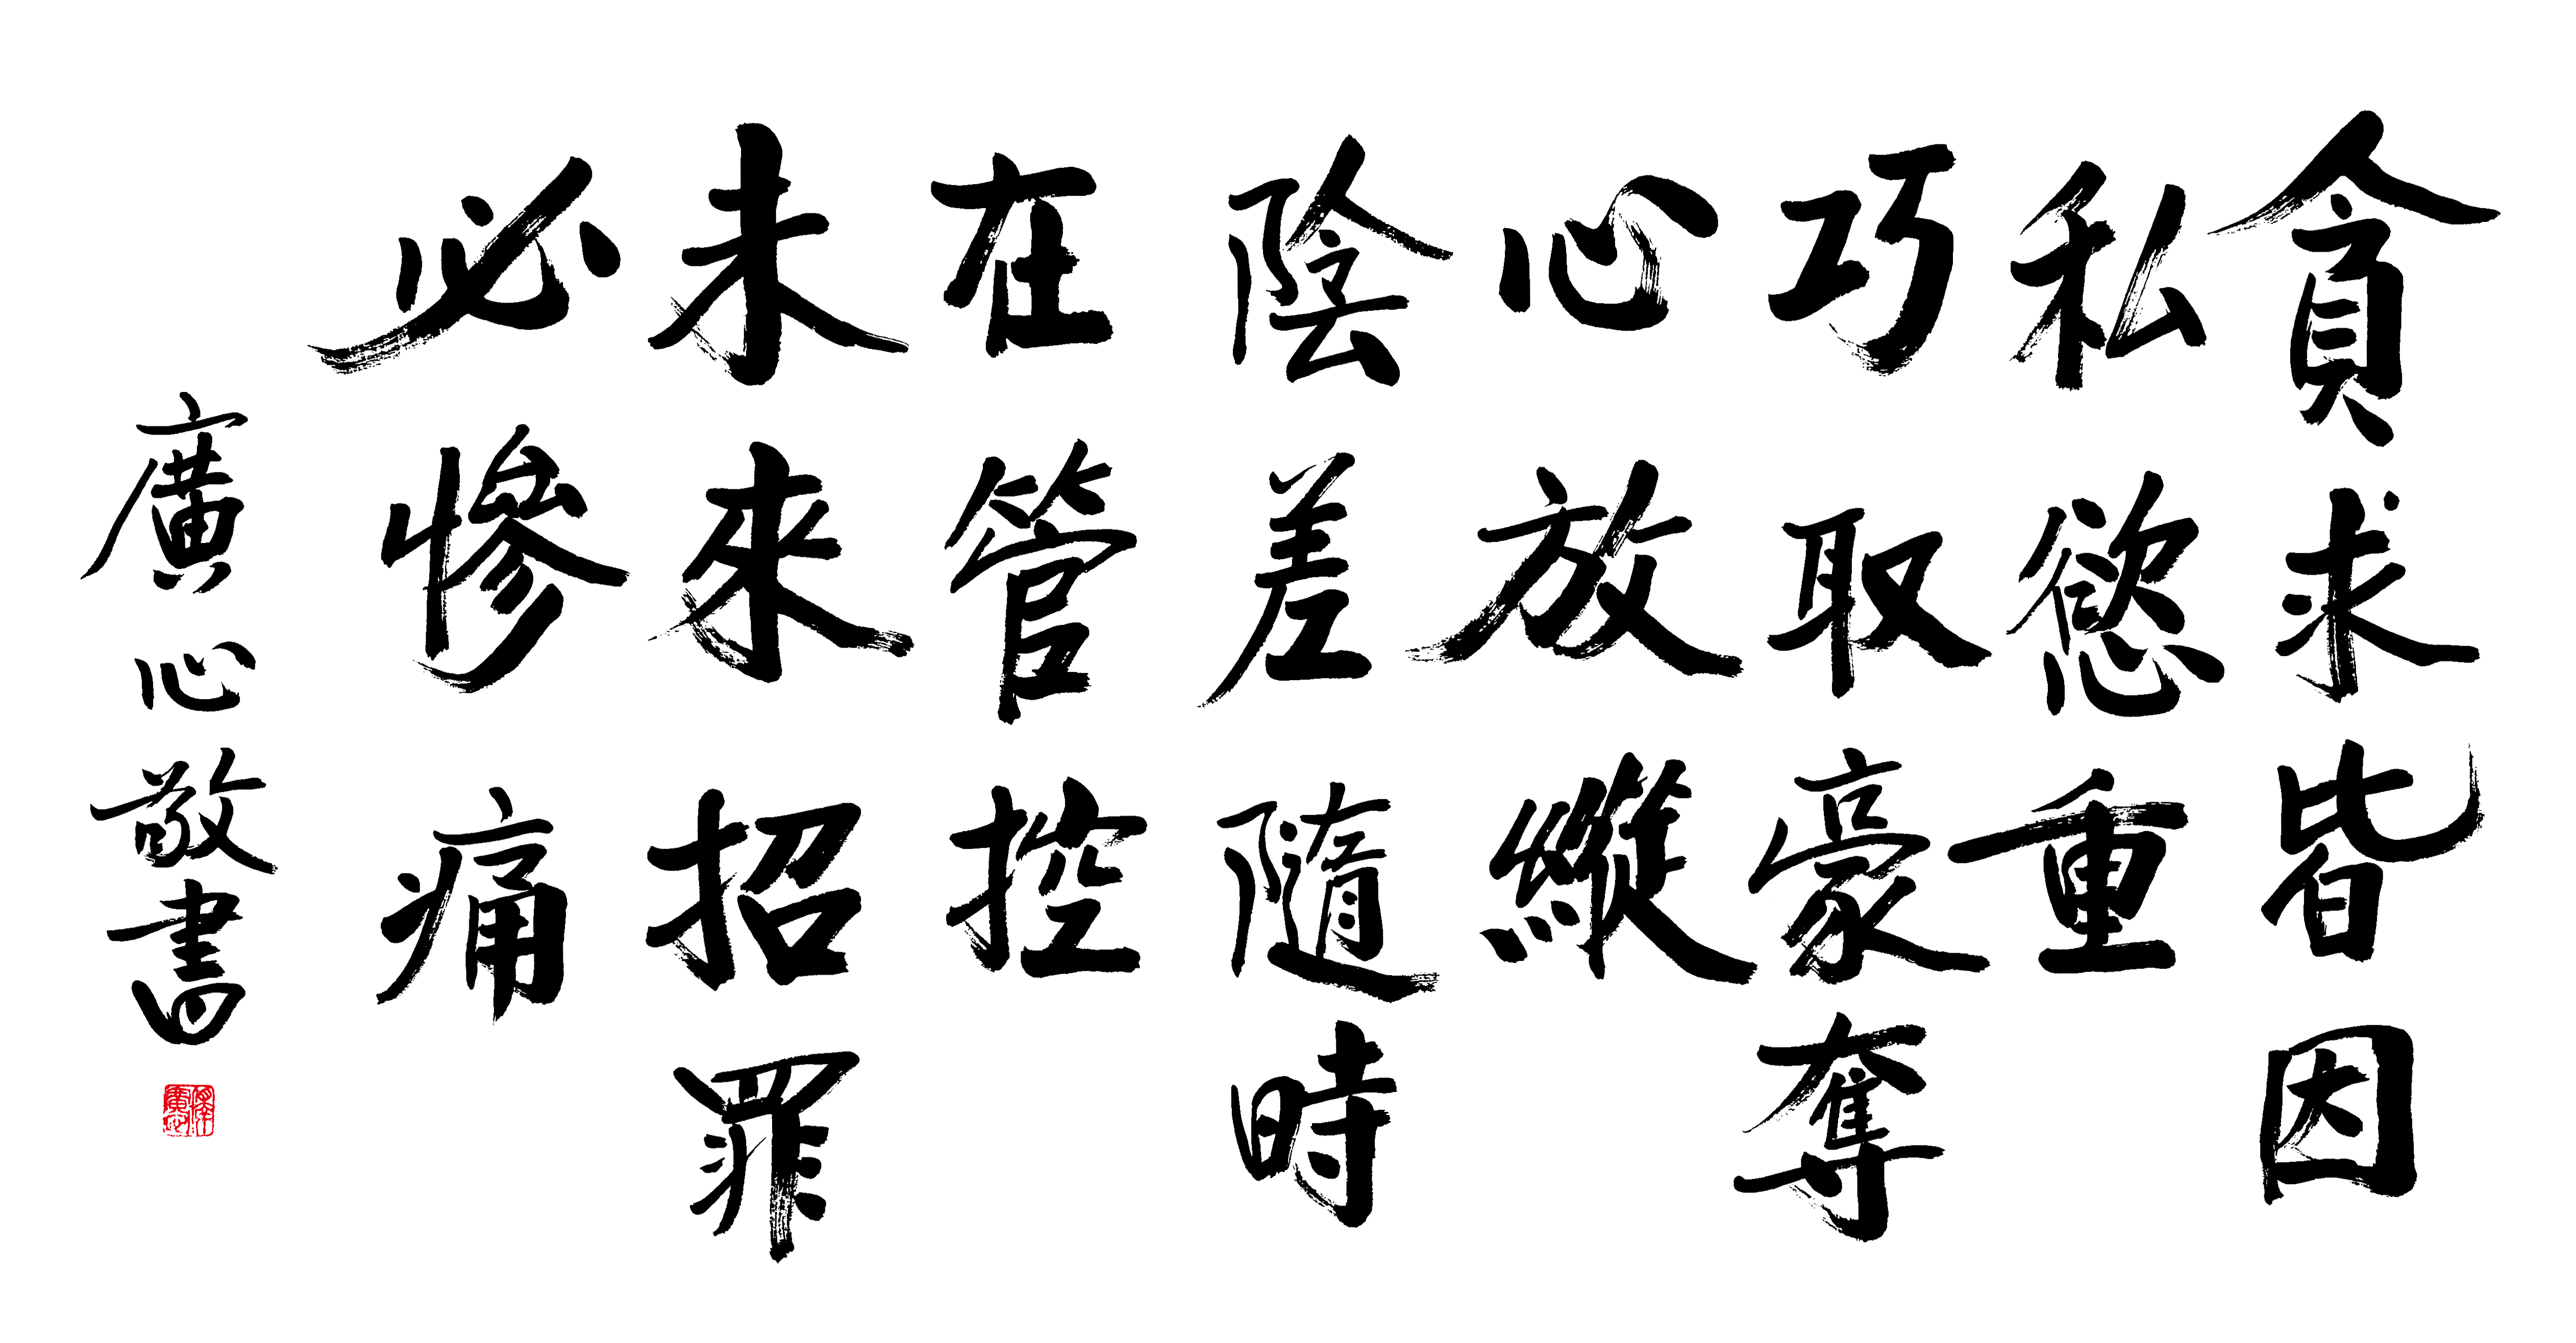 貪求皆因
私慾重
巧取豪奪
心放縱
陰差隨時
在管控
未來招罪
必慘痛
廣心敬書